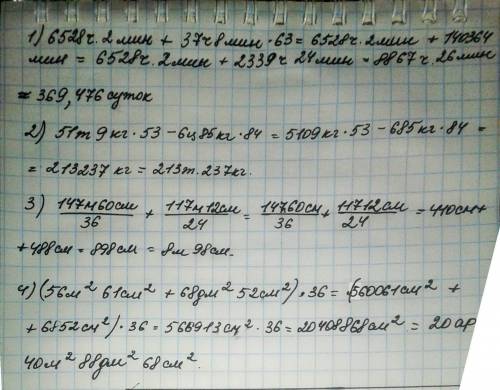 1) 6528ч. 2мин + 37ч 8мин · 63 = 6528ч. 2мин + 140364
мин = 6528ч. 2мин + 2339ч 24мин = 8867ч. 26мин
= 369,476 суток
2) 51т 9кг · 53 - 6ц 85кг · 84 = 5109кг · 53 - 685кг · 84 =
= 213237 кг = 213т. 237кг.
3) 147м 60см/36 + 117м 12см/24 = 14760см/36 + 11712см/24 = 410см +
+ 488см = 898см = 8м 98см.
4) (56м² 61см² + 68дм² 52см²) · 36 = (560061см² +
+ 6852см²) · 36 = 566913см² · 36 = 20408868см² = 20ар
40м² 88дм² 68см².